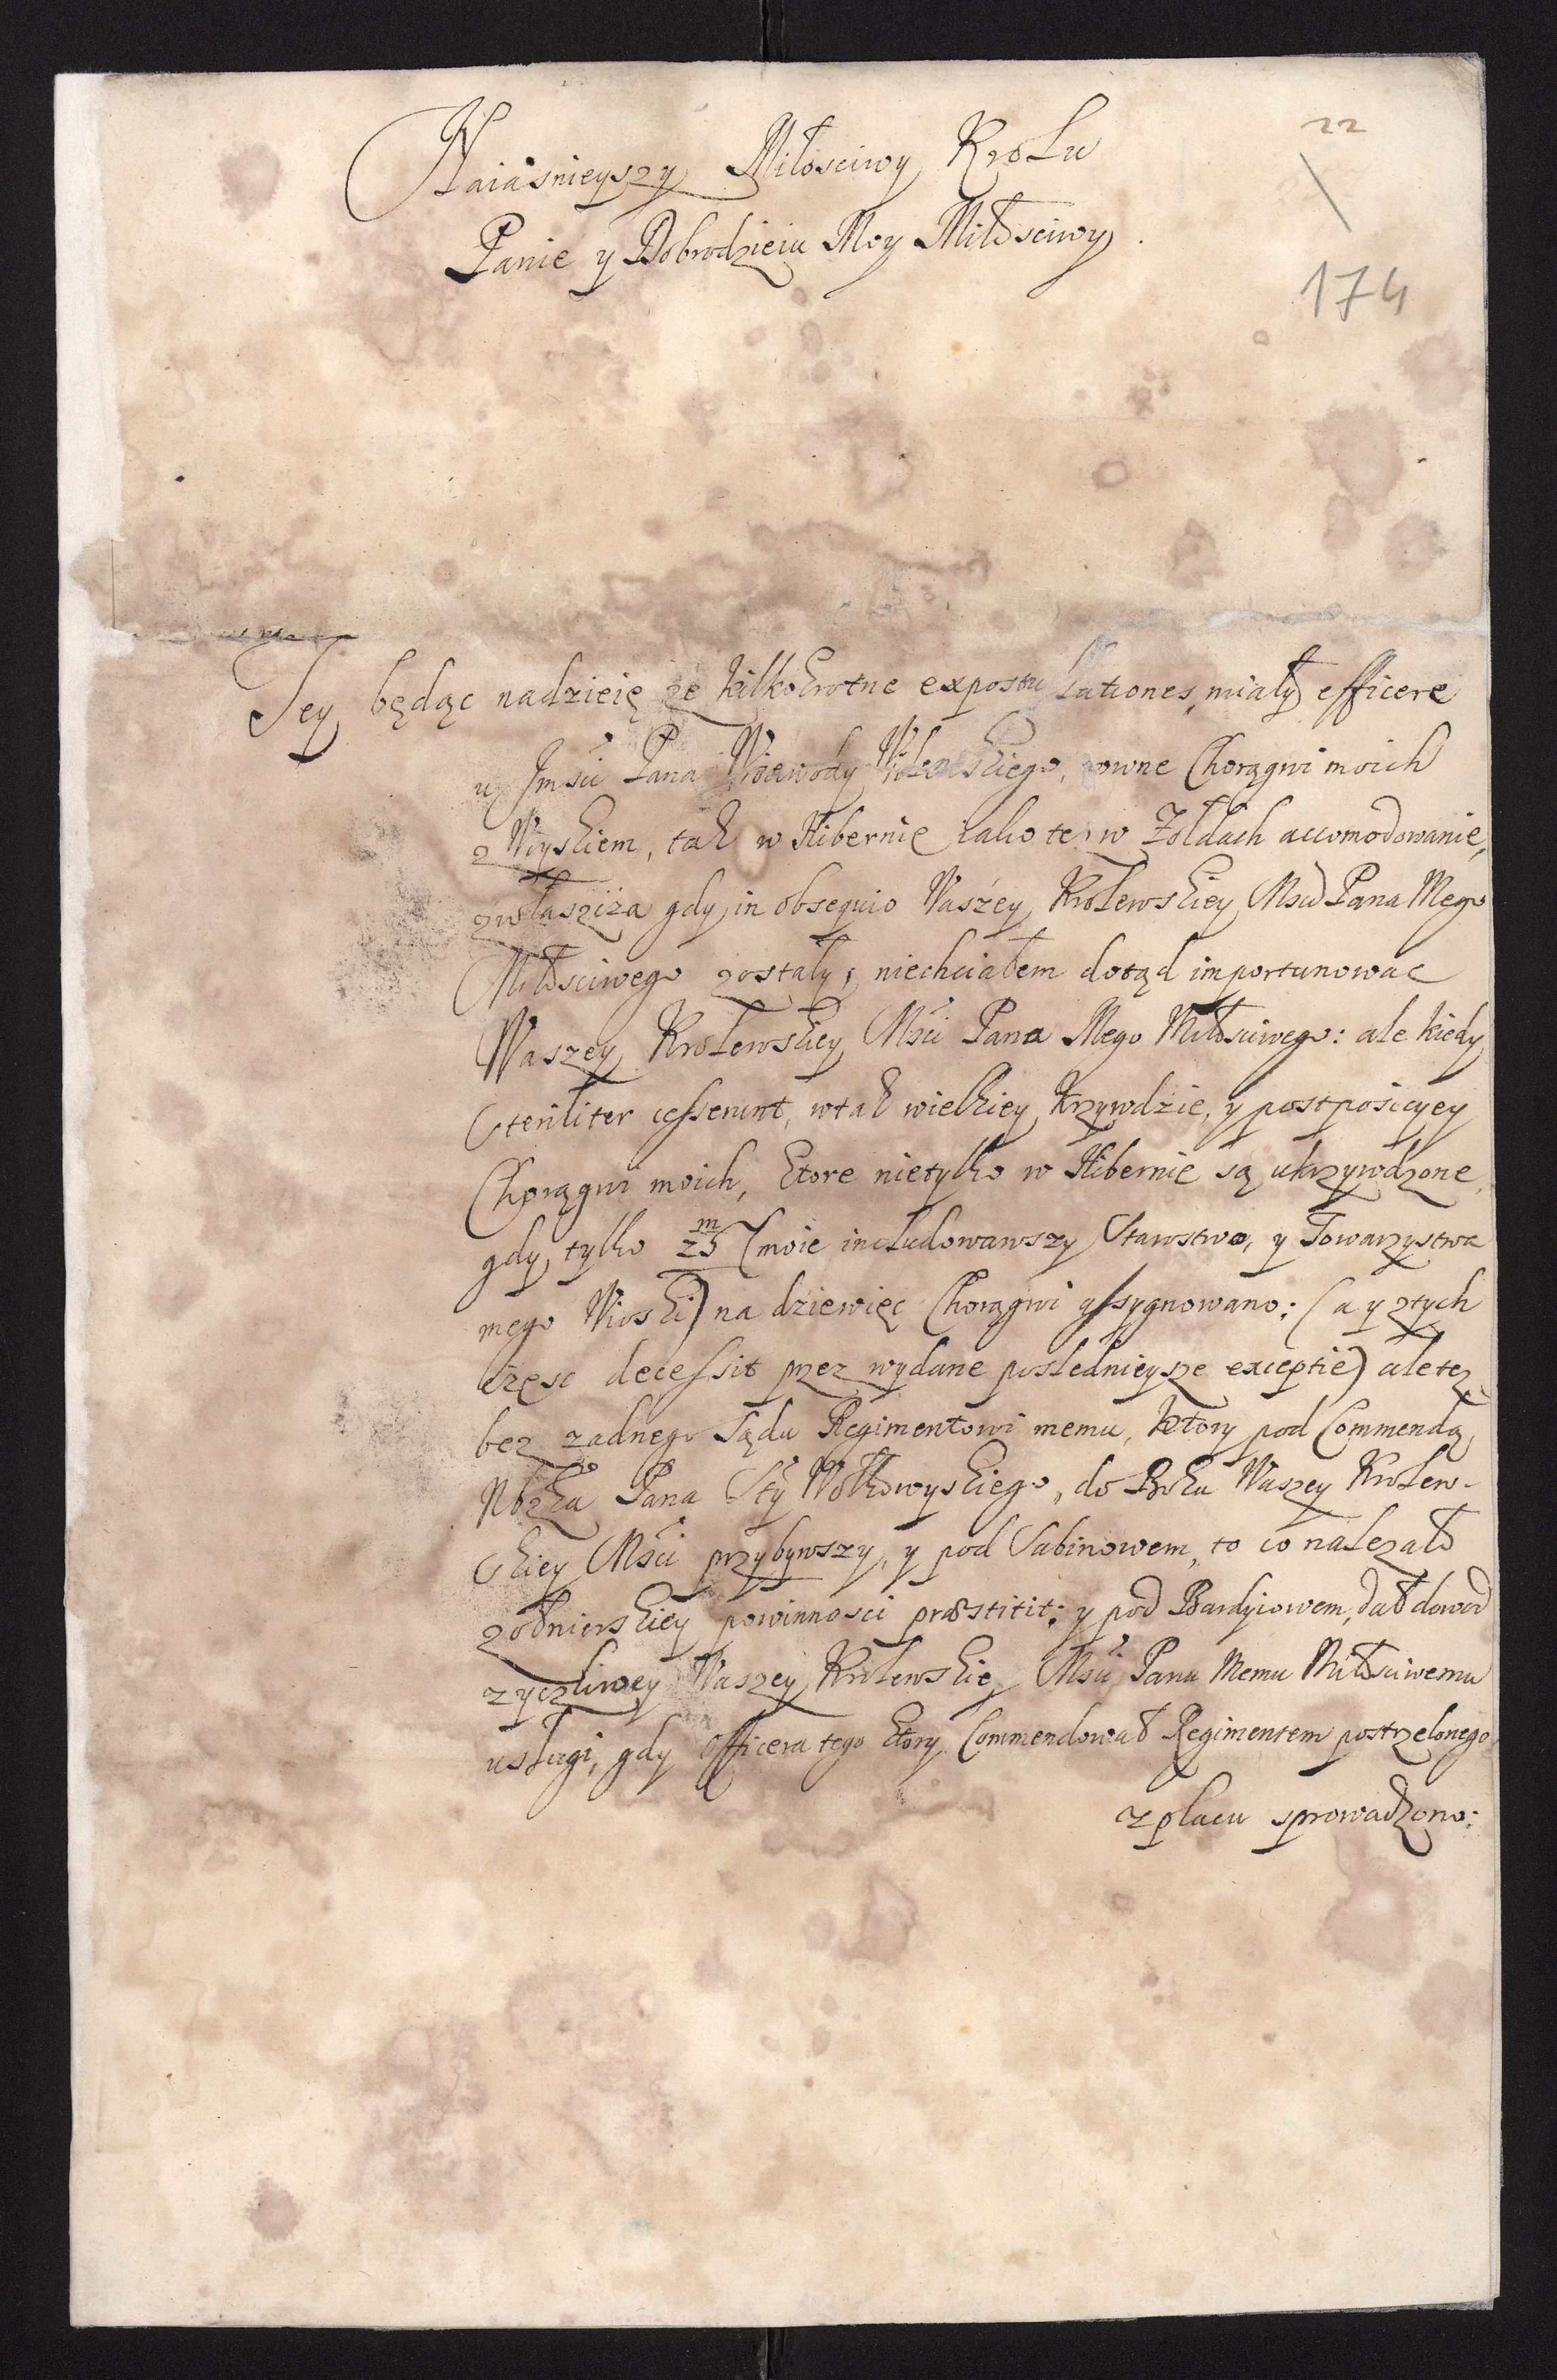 22
174
Naiasnieyszy Miłosciwy Krolu
Panie y Dobrodzieiu Moy Miłosciwy.
Tey będąc nadzieię ze kilkokrotne expostulationes, miały efficere
u Jmści Pana Woiewody Wilenskiego, rowne Chorągwi moich
z Woyskiem, tak w Hibernie iako tez w Zołdach accomodowanie,
zwłaszcza gdy in obsequio Waszey Krolewskiey Mści Pana Mego
Miłosciwego zostały, niechciałem dotąd importunowac
Waszey Krolewskiey Mści Pana Mego Miłosciwego: ale kiedy
steriliter cesserunt, wtak wielkiey krzywdzie, y postposicyey
Chorągwi moich, ktore nietylko w Hibernie są ukrzywdzone,
gdy tylko z5 m (moie includowawszy Starstwo, y Towarzystwa
mego Wioski) na dziewięc Chorągwi assygnowano: (a y ztych
częsc decessit przez wydane poslednieysze exceptie) ale tez
bez zadnego sądu Regimentowi memu, ktory pod Commendą
Pana Stty Wołkowyskiego, do Boku Waszey Krolew-
skiey Mści przybywszy, y pod Sabinowem, to co nalezało
zołnierskiey powinnosci præstitit; y pod Bardyiowem, dał dowod
zyczliwey Waszey Krolewskiey Mści Panu Memu Miłosciwemu
usługi, gdy officera tego ktory Commendował Regimentem postrzelonego
z placu sprowadzono: